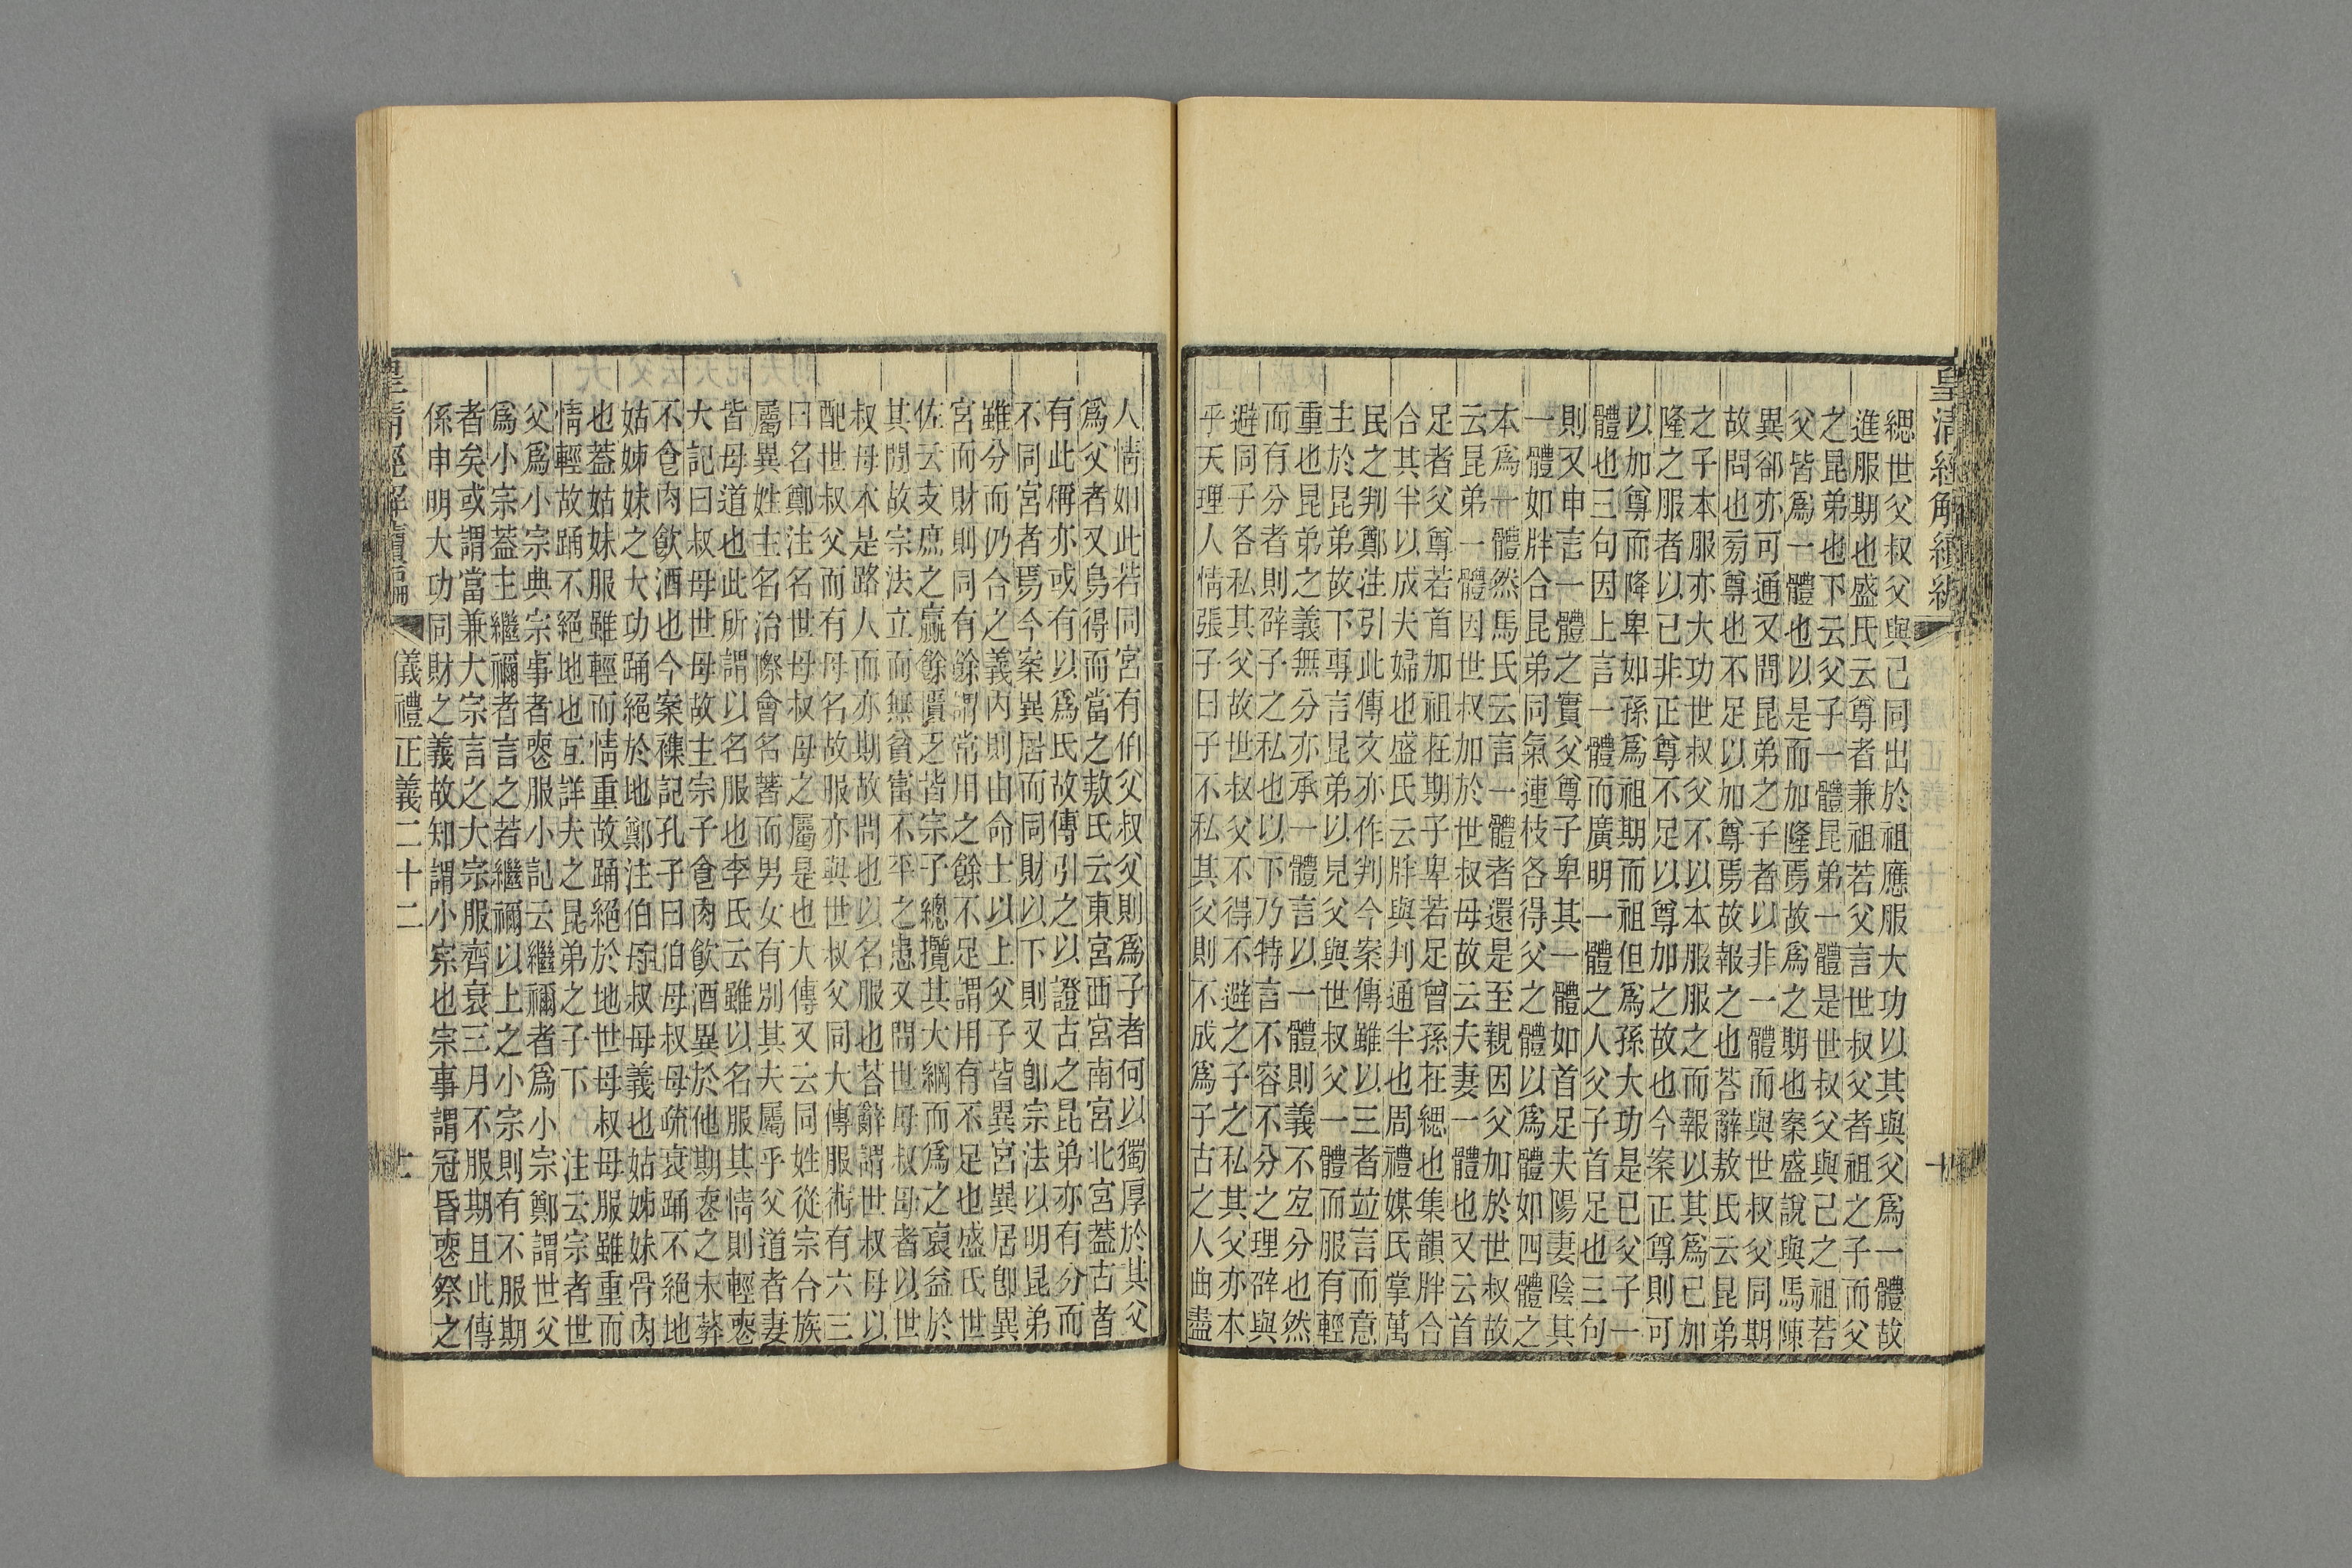 皇清經解續編
緦世父叔父與己同出於祖應服大功以其與父爲一體故
進服期也盛氏云尊者兼祖若父言世叔父者祖之子而父
之昆弟也下云父子一體昆弟一體是世叔父與己之祖若
父皆爲一體也以是而加隆焉故爲之期也案盛說與馬陳
異郤亦可通又問昆弟之子者以非一體而與世叔父同期
故問也㫄尊也不足以加尊焉故報之也荅辭敖氏云昆弟
之子本服亦大功世叔父不以本服服之而報以其爲己加
隆之服者以已非正尊不足以尊加之故也今案正尊則可
以加尊而降卑如孫爲祖期而祖但爲孫大功是已父子一
體也三句因上言一體而廣明一體之人父子首足也三句
則又申言一體之實父尊子卑其一體如首足夫陽妻陰其
一體如牉合昆弟同氣連枝各得父之體以爲體如四體之
本爲一體然馬氏云言一體者還是至親因父加於世叔故
云昆弟一體因世叔加於世叔母故云夫妻一體也又云首
足者父尊若首加祖在期子卑若足曾孫在緦也集韻牉合
合其半以成夫婦也盛氏云牉與判通半也周禮媒氏掌萬
民之判鄭注引此傳文亦作判今案傳雖以三者竝言而意
主於昆弟故下專言昆弟以見父與世叔父一體而服有輕
重也昆弟之義無分亦承一體言以一體則義不宜分也然
而有分者則辟子之私也以下乃特言不容不分之理辟與
避同子各私其父故世叔父不得不避之子之私其父亦本
乎天理人情張子曰子不私其父則不成爲子古之人曲盡
人情如此若同宮有伯父叔父則爲子者何以獨厚於其父
爲父者又烏得而當之敖氏云東宮西宮南宮北宮蓋古者
有此稱亦或有以爲氏故傳引之以證古之昆弟亦有分而
不同宮者焉今案異居而同財以下則又卽宗法以明昆弟
雖分而仍合之義內則由命士以上父子皆異宮異居卽異
宮而財則同有餘謂常用之餘不足謂用有不足也盛氏世
佐云支庶之贏餘匱乏皆宗子總攬其大綱而爲之裒益於
其閒故宗法立而無貧富不平之患又問世母叔母者以世
叔母本是路人而亦期故問也以名服也荅辭謂世叔母以
配世叔父而有母名故服亦與世叔父同大傳服術有六三
曰名鄭注名世母叔母之屬是也大傳又云同姓從宗合族
屬異姓主名治際會名著而男女有別其夫屬乎父道者妻
皆母道也此所謂以名服也李氏云雖以名服其情則輕喪
大記曰叔母世母故主宗子食肉飲酒異於他期喪之未葬
不食肉飲酒也今案襍記孔子曰伯母叔母疏衰踊不絕地
姑姊妹之大功踊絕於地鄭注伯母叔母義也姑姊妹骨肉
也蓋姑妹服雖輕而情重故踊絕於地世母叔母服雖重而
情輕故踊不絕地也互詳夫之昆弟之子下　注云宗者世
父爲小宗典宗事者喪服小記云繼禰者爲小宗鄭謂世父
爲小宗蓋主繼禰者言之若繼禰以上之小宗則有不服期
者矣或謂當兼大宗言之大宗服齊衰三月不服期且此傳
係申明大功同財之義故知謂小宗也宗事謂冠昏喪祭之
皇清經解續編　儀禮正義二十二